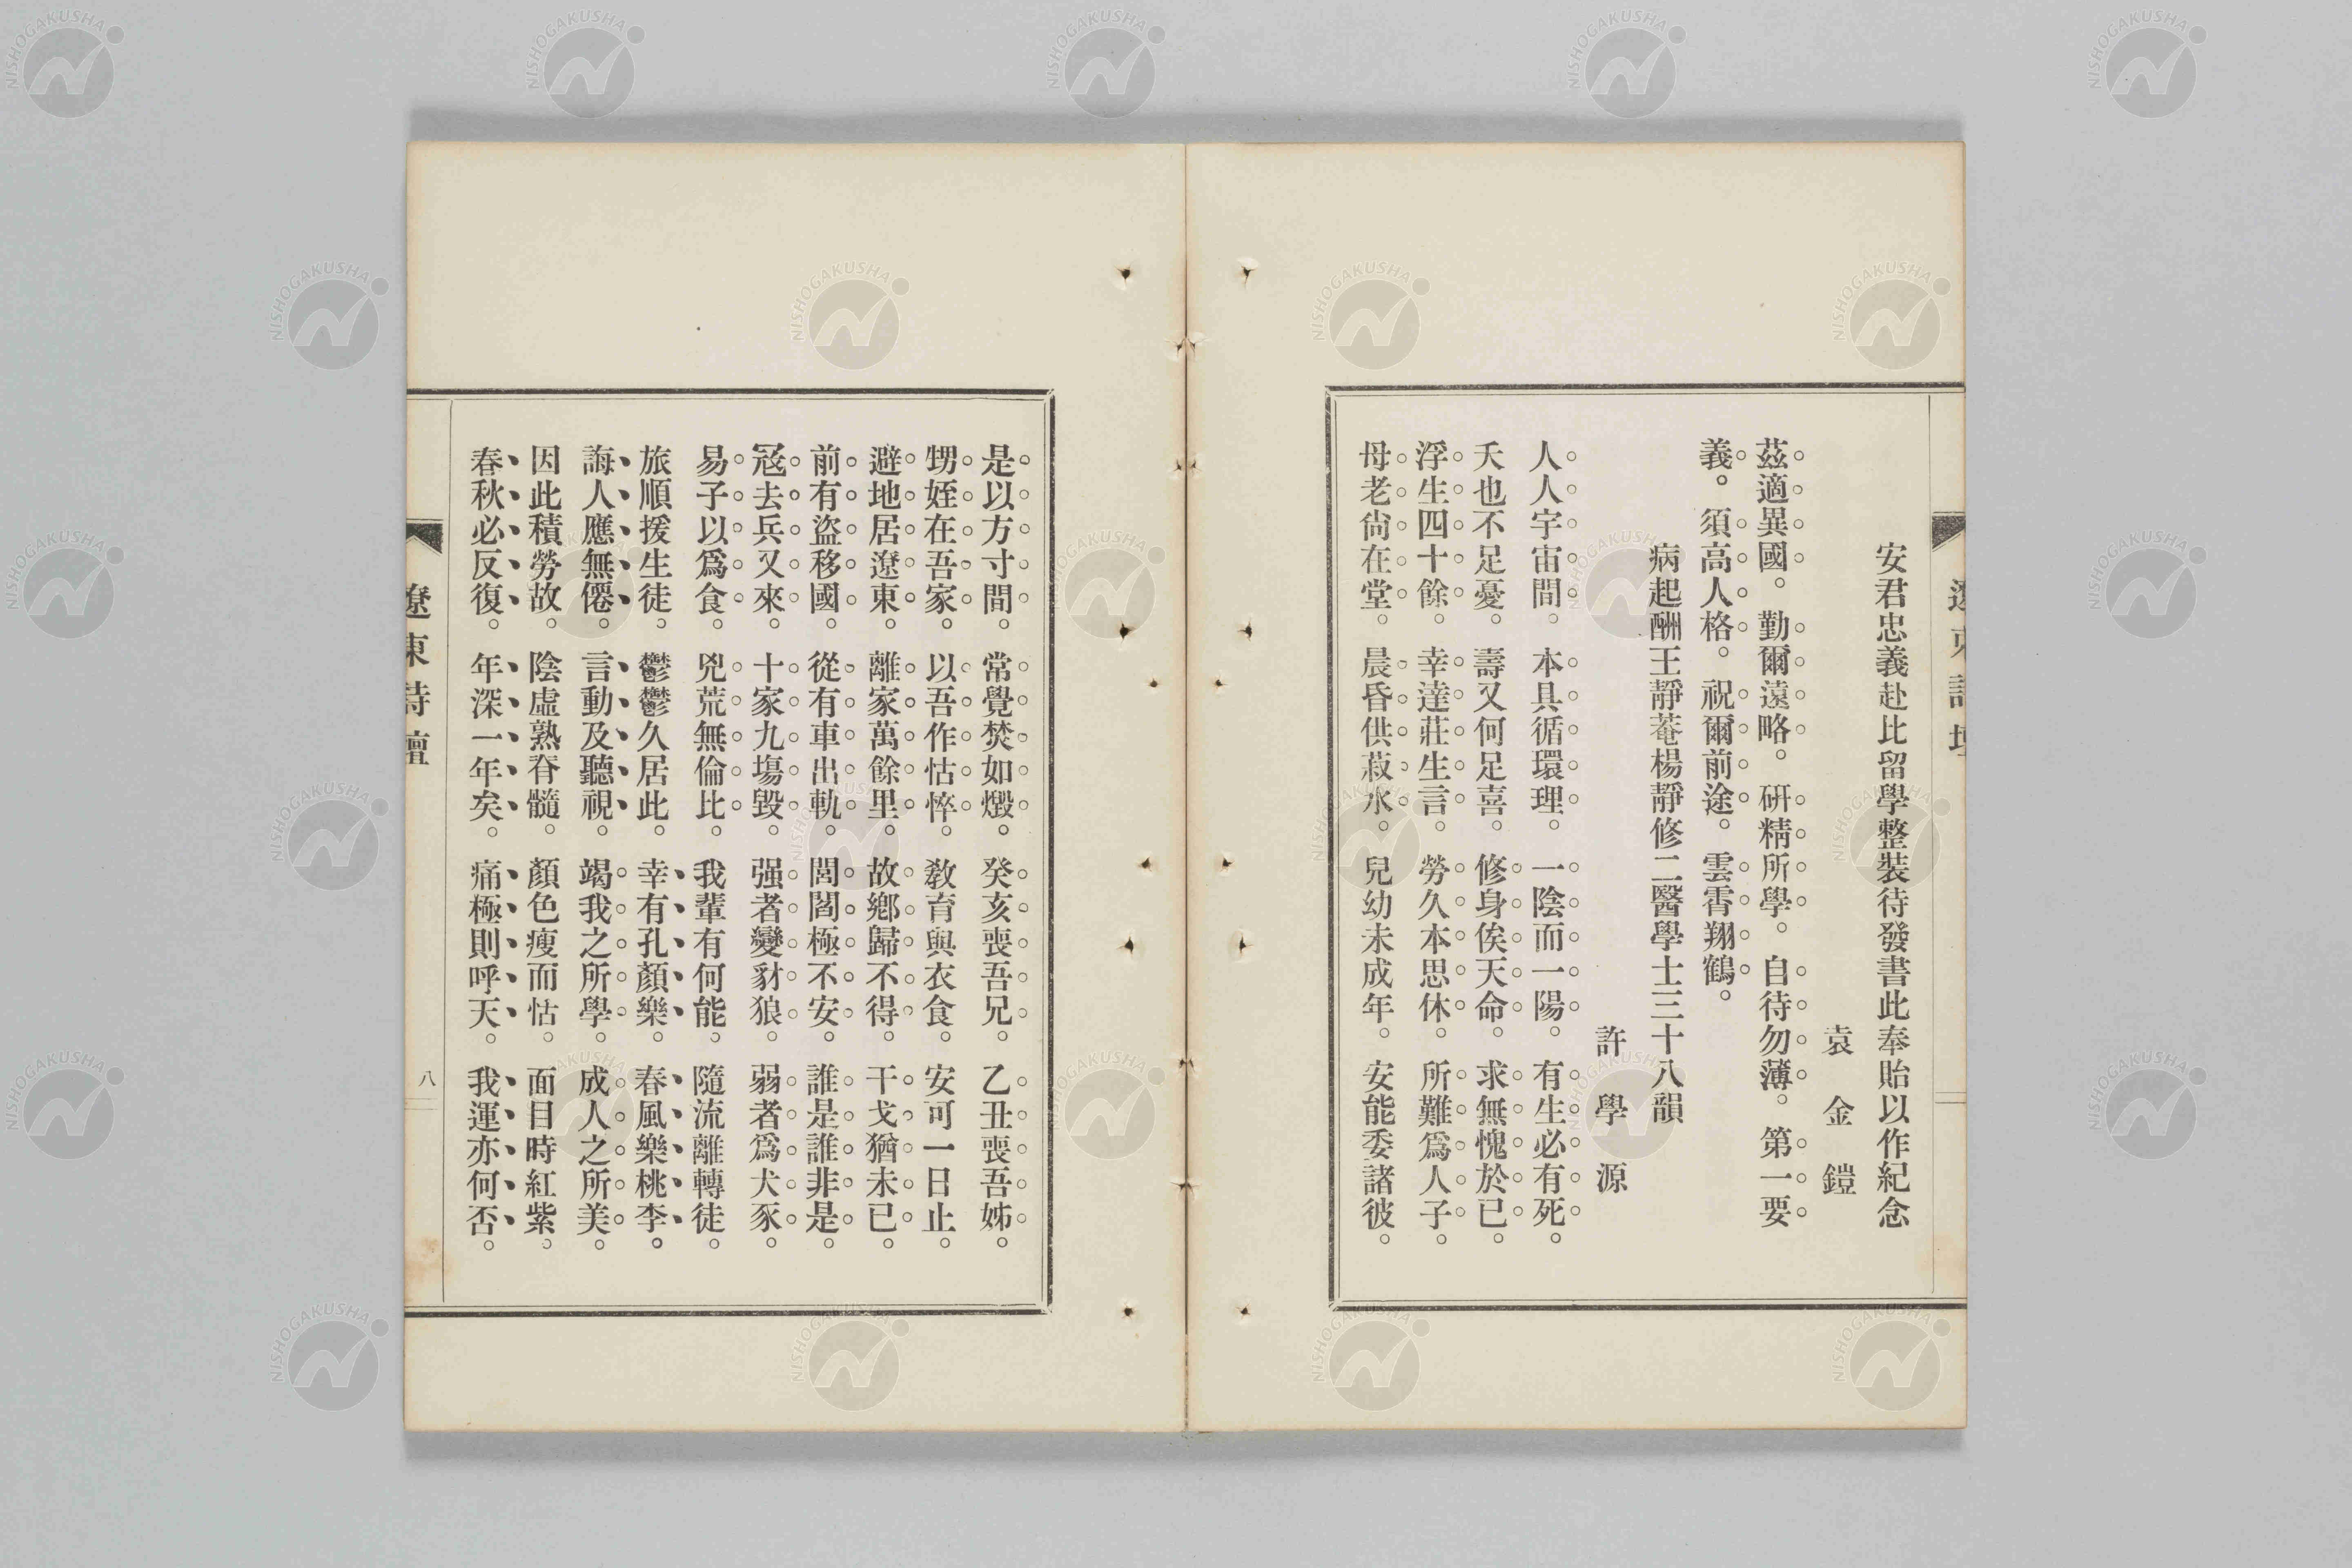 安君忠義赴比留學整裝待發書此奉貽以作紀念
袁金鎧
茲適異國。勤爾遠略。研精所學。自待勿薄。第一要
義。須高人格。祝爾前途。雲霄翔鶴。
病起酬王靜菴楊靜修二醫學士三十八韻
許學源
人人宇宙間。本具循環理。一陰而一陽。有生必有死。
夭也不足憂。壽又何足喜。修身俟天命。求無愧於已。
浮生四十餘。幸達莊生言。勞久本思休。所難爲人子。
母老尙在堂。晨昏供菽水。兒幼未成年。安能委諸彼。
是以方寸間。常覺焚如燬。癸亥喪吾兄。乙丑喪吾姊。
甥姪在吾家。以吾作怙悴。敎育與衣食。安可一日止。
避地居遼東。離家萬餘里。故鄕歸不得。干戈猶未已。
前有盜移國。從有車出軌。閭閻極不安。誰是誰非是。
冦去兵又來。十家九塲毀。强者變豺狼。弱者爲犬豕。
易子以爲食。兇荒無倫比。我輩有何能。隨流離轉徙。
旅順援生徒。鬱鬱久居此。幸有孔顏樂。春風樂桃李。
誨人應無倦。言動及聽視。竭我之所學。成人之所美。
因此積勞故。陰虛熟脊髓。顏色瘦而怙。面目時紅紫。
春秋必反復。年深一年矣。痛極則呼天。我運亦何否。
遼東詩壇
八
NISHOGAKUSHA